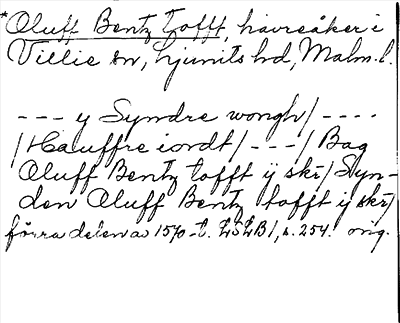 *Oluff Bentz tofft, havreåker i
Villie sn, Ljunits hd, Malm. l.
--- y Syndre wongh/ ----
/Hauffre iordt/ ---/ Bag
Oluff Bentz tofft ÿ skr/ Syn-
den Oluff Bentz tofft ÿ skr/
förra delen av 1570-t. LSLB1, s. 254. orig.